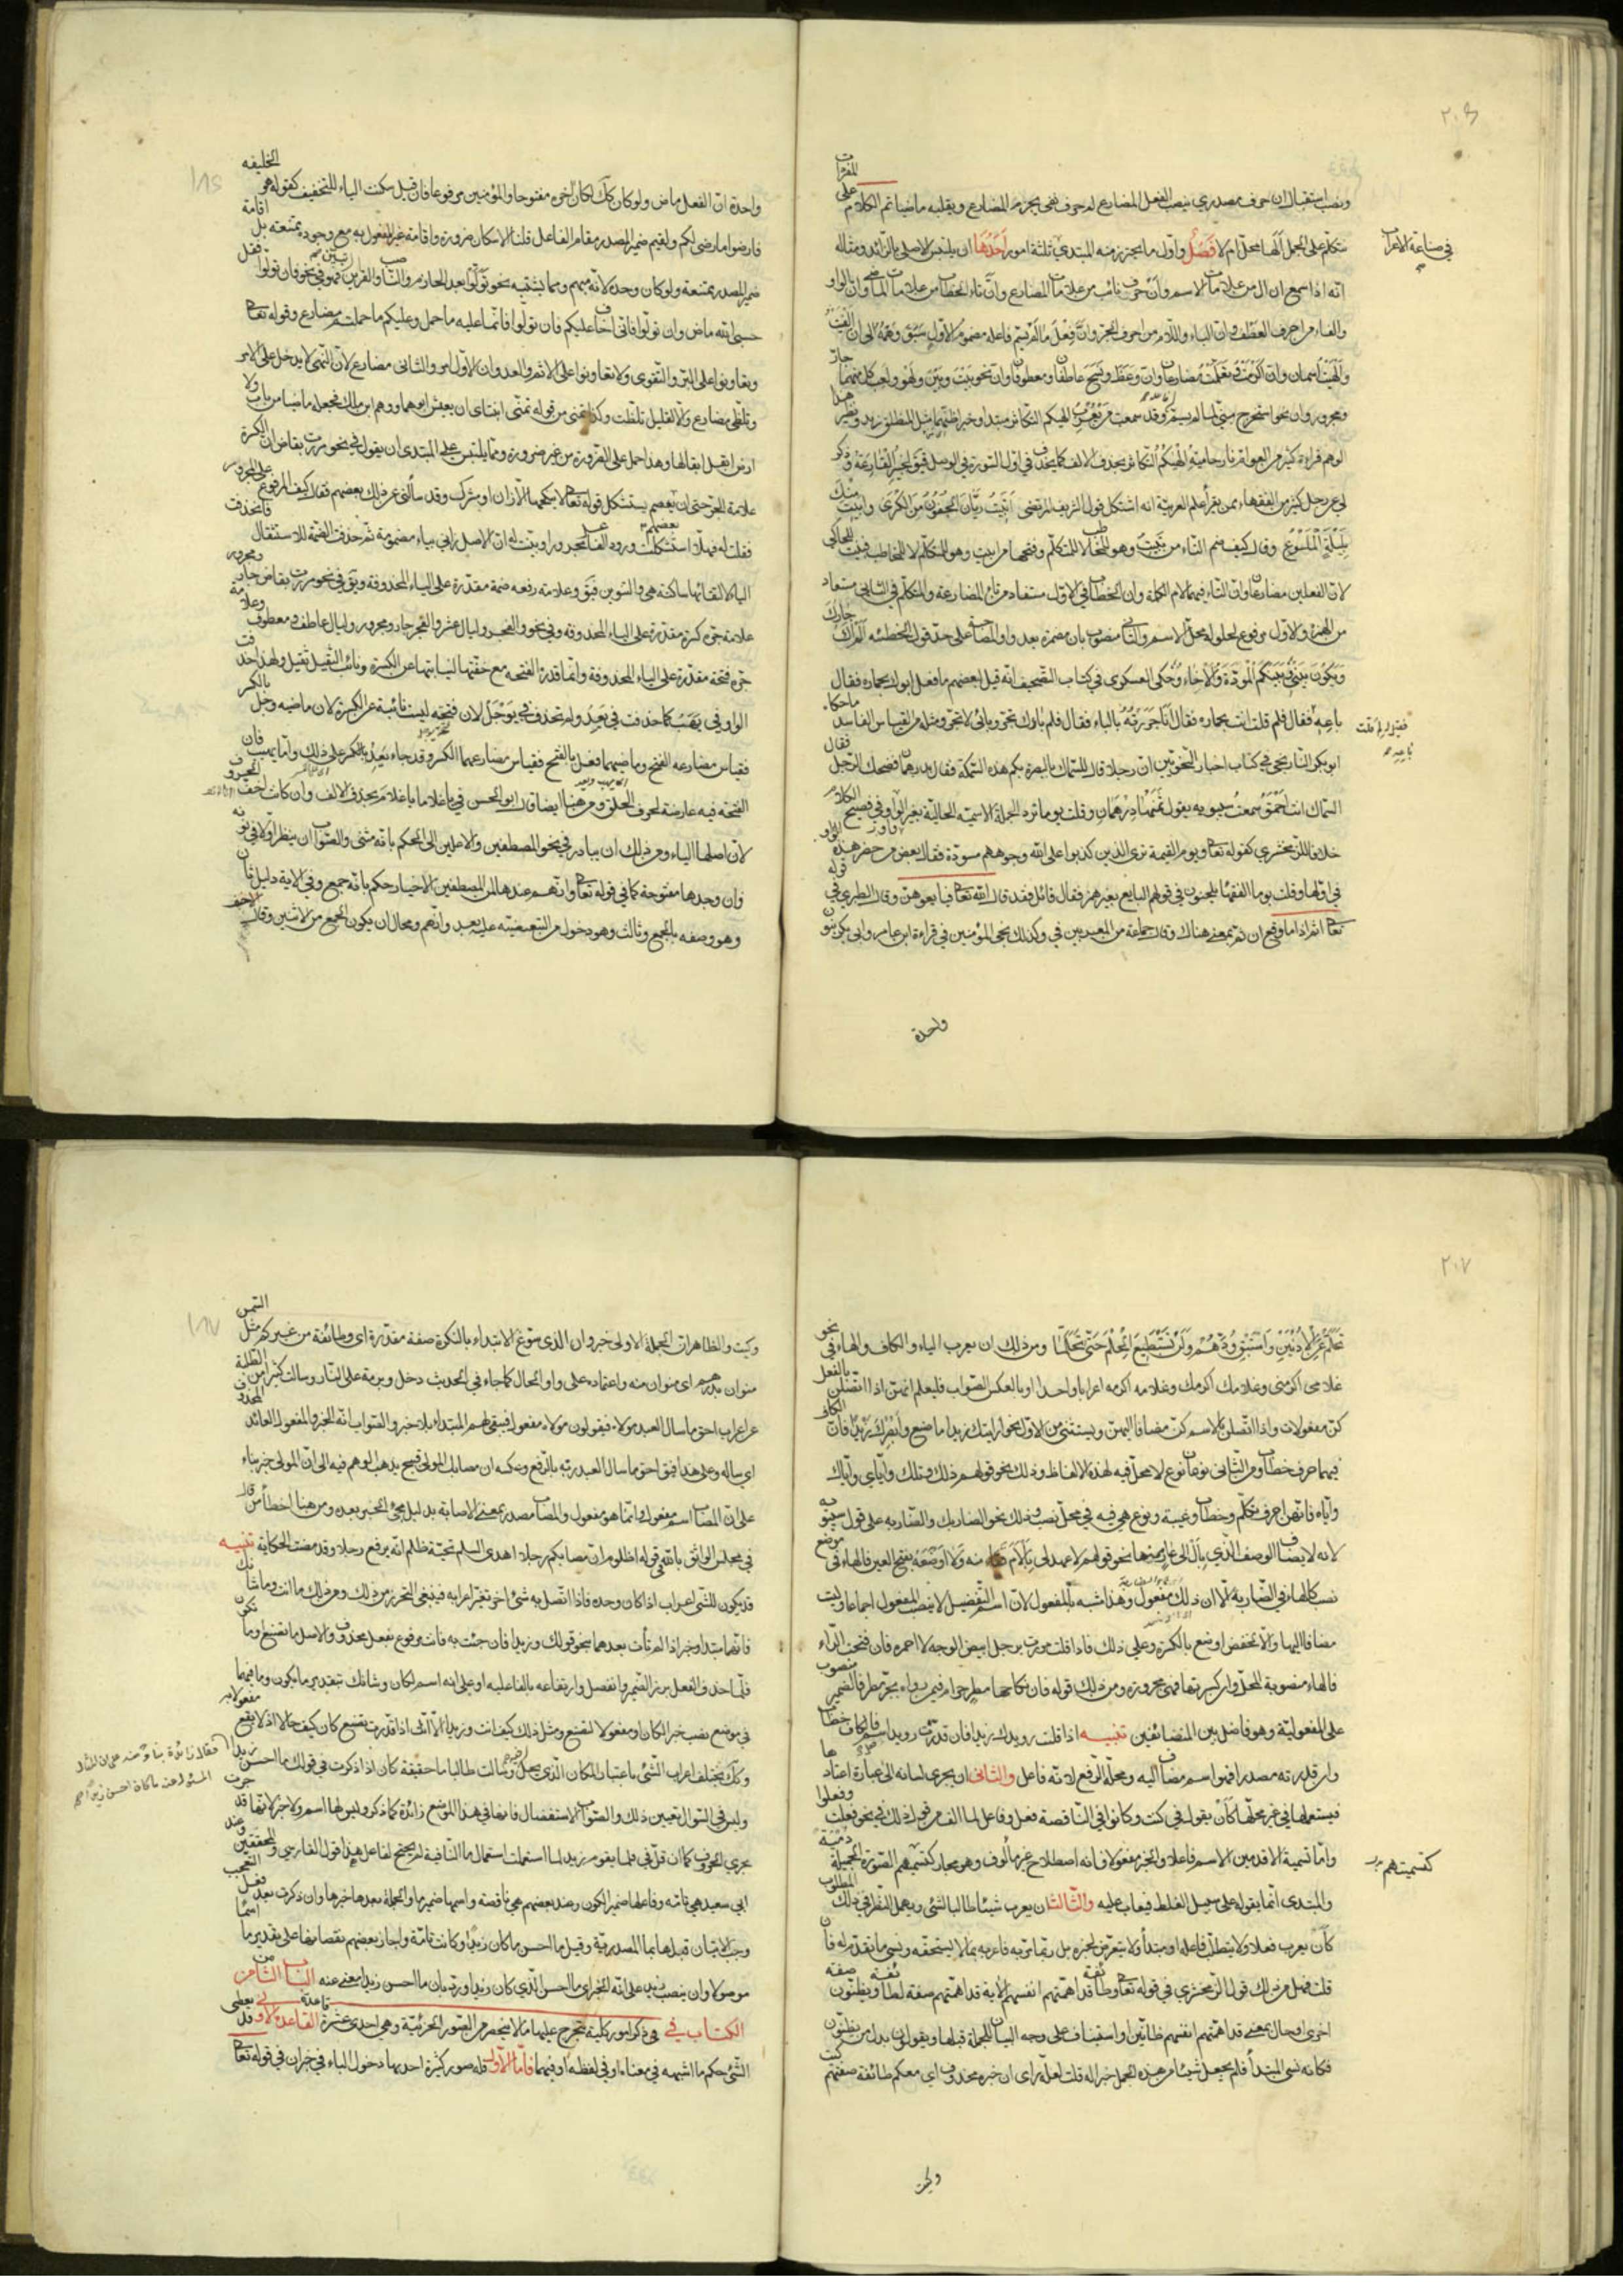 ٢٠٦
ونصب استقبال ان حرف مصدري ينصب الفعل المضارع لم حرف نفي يجزم المضارع ويقلبه ماضيا تم الكلام على المفردات
متكلم على الجمل الها محل ام لا فصل واول ما يحترز منه المبتدي في صناعة الاعراب ثلثة امور احدها ان يلتبس الاصلي بالزائد ومثاله
انه اذا سمع ان ال من علامات الاسم وان احرف نأيت من علامات المضارع وان تاء الخطاب من علامات الماضي وان الواو
والفاء من احرف العطف وان الباء واللام من احرف الجر وان فعل ما لم يسم فاعله مضموم الاول سبق وهمه الى ان الفيت
والهيت اسمان وان اكرمت وتعلمت مضارعان وان وعظ وفسخ عاطفان ومعطوفان وان نحو بيت وبين ولهو ولعب كل منهما جار
ومجرور وان نحو استخرج مبني لما لم يسم وقد سمعت من يعرب الهيكم التكاثر مبتدا وخبرا ظنهما مثل المنطلق زيد ونظير هذا
الوهم قراءة كثير من العوام نار حامية الهيكم التكاثر بحذف الالف كما يحذف في اول السورة في الوصل فيق لخبير القارعة وذكر
لي عن رجل كبير من الفقهاء ممن يقرأ علم العربية انه اشتكل قول الشريف المرتضى اتبيت ريان الجفون من الكرى وابيت منك
بليلة الملسوع وقال كيف ضم التاء من تبيت وهو للمخاطب لا للمتكلم وفتحها من ابيت وهو للمتكلم لا للمخاطب فبينت للحاكي
لان الفعلين مضارعان وان التاء فيهما لام الكلمة وان الخطاب في الاول مستفاد من تاء المضارعة والمتكلم في الثاني مستفاد
من الهمزة والاول مرفوع لحلوله محل الاسم والثاني منصوب بان مضمرة بعد واو المصاحبة على حد قول الحطيئه الم اك جارك
ويكون بيني وبينكم المودة والاخاء وحكى العسكري في كتاب التصحيف انه قيل لبعضهم ما فعل ابوك بحماره فقال
باعه فقال فلم قلت انت بحماره فقال انا جررته بالباء فقال فلم باؤك تجر وبائي لا تجر ومثله من القياس الفاسد ما حكاه
ابو بكر التاريخي في كتاب اخبار النحويين ان رجلا قال للسماك بالبصرة بكم هذه السمكة فقال بدرهمان فضحك الرجل فقال
السماك انت احمق سمعت سيبويه يقول ثمنها درهمان وقلت يوما ترد الجملة الاسمية الحالية بغير الواو في فصيح الكلام
خلافا للزمخشري كقوله تعا ويوم القيمة ترى الذين كذبوا على الله وجوههم مسودة فقال بعض من حضر هذه الواو
في اولها وقلت يوما الفقهاء يلحنون في قولهم البايع بغير همز فقال قائل فقد قال الله تعا فبايعوهن وقال الطبري في قوله
تعا اثم اذا ما وقع ان ثم بمعنى هناك وقال جماعة من المعربين في وكذلك نجي المؤمنين في قراءة ابن عامر وابي بكر نون
في صناعة الاعراب
واحدة
واحدة ان الفعل ماض ولو كان كك لكان اخره مفتوحا والمؤمنين مرفوعا فان قيل سكنت الياء للتخفيف كقوله هو الخليفه
فارضوا ما رضي لكم واقيم ضمير المصدر مقام الفاعل قلنا الاسكان ضرورة واقامة غير المفعول به مع وجوده ممتنعه بل اقامة
ضمير المصدر ممتنعة ولو كان وحده لانه مبهم ومما يشتبه نحو تولوا بعد الجازم والناصب والقرائن تبين فهو في نحو فان تولوا فقل
حسبي الله ماض وان تولوا فاني اخاف عليكم فان تولوا فانما عليه ما حمل وعليكم ما حملتم مضارع وقوله تعا
وتعاونوا على البر والتقوى ولا تعاونوا على الاثم والعدوان الاول امر والثاني مضارع لان النهي لا يدخل على الامر
وتلظى مضارع والا لقيل تلظت وكذا تمنى من قوله تمنى ابنتاي ان يعيش ابوهما ووهم ابن مالك فجعله ماضيا من باب ولا
ارض ابقل ابقالها وهذا حمل على الضرورة من غير ضرورة ومما يلتبس على المبتدي ان يقول في نحو مررت بقاض ان الكسرة
علامة الجر حتى ان بعضهم يستشكل قوله تعا لا ينكحها الا زان او مشرك وقد سألني عن ذلك بعضهم فقال كيف عطف المرفوع على المجرور
فقلت له فهلا استشكلت ورود الفاعل مجرورا وبينت له ان الاصل زاني بياء مضمومة ثم حذفت الضمة للاستثقال فانحذفت
الياء لالتقائها ساكنة هي والتنوين فيق وعلامة رفعه ضمة مقدرة على الياء المحذوفة ويق في نحو مررت بقاض جار ومجرور
علامة جره كسرة مقدرة على الياء المحذوفة وفي نحو والفجر وليال عشر والفجر جار ومجرور وليال عاطف ومعطوف وعلامة
جره فتحة مقدرة على الياء المحذوفة وانما قدرت الفتحه مع خفتها لنيابتها عن الكسرة ونائب الثقيل ثقيل ولهذا حذفت
الواو في يهب كما حذفت في يعد ولم تحذف في يوجل لان فتحته ليست نائبة عن الكسرة لان ماضيه وجل بالكسر
فقياس مضارعه الفتح وماضيهما فعل بالفتح فقياس مضارعهما الكسر وقد جاء يعد بالكسر على ذلك واما يهب فان
الفتحة فيه عارضة لحرف الحلق ومن هنا ايضا قال ابو الحسن في يا غلاما يا غلام بحذف الالف وان كانت اخف الحروف
لان اصلها الياء ومن ذلك ان يبادر في نحو المصطفين والاعلين الى الحكم بانه مثنى والصواب ان ينظر اولا في نونه
فان وجدها مفتوحة كما في قوله تعا وانهم عندنا لمن المصطفين الاخيار حكم بانه جمع وفي الاية دليل ثان
وهو وصفه بالجمع وثالث وهو دخول من التبعيضيه عليه بعد وانهم ومحال ان يكون الجمع من الاثنين وقال الاحنف
٢٠٧
تحلم عن الادنين واستبق ودهم ولن تستطيع الحلم حتى تحلما ومن ذلك ان يعرب الياء والكاف والهاء في نحو
غلامي اكرمني وغلامك اكرمك وغلامه اكرمه اعرابا واحدا او بالعكس الصواب فليعلم انهن اذا اتصلن بالفعل
كن مفعولات واذا اتصلن بالاسم كن مضافا اليهن ويستثنى من الاول نحو ارايتك زيدا ما صنع وابصرك زيدا فان الكاف
فيهما حرف خطاب ومن الثاني نوعان نوع لا محل فيه لهذه الالفاظ وذلك نحو قولهم ذلك وتلك واياي واياك
واياه فانهن احرف تكلم وخطاب وغيبة ونوع هي فيه في محل نصب وذلك نحو الضاربك والضاربه على قول سيبويه
لانه لا يضاف الوصف الذي بال الى عار منها نحو قولهم لا عهد لي بالأم منه ولا اوضعه بفتح العين فالهاء في موضع
نصب كالهاء في الضاربه الا ان ذلك مفعول وهذا مشبه بالمفعول لان اسم التفضيل لا ينصب المفعول اجماعا وليست
مضافا اليها والا لخفض اوضع بالكسرة وعلى ذلك فاذا قلت مررت برجل ابيض الوجه لا احمره فان فتحت الراء
فالهاء منصوبة المحل وان كسرتها فهي مجرورة ومن ذلك قوله فان نكاحها مطر حرام فيمن رواه بجر مطر فالضمير منصوب
على المفعولية وهو فاصل بين المتضائفين تنبيه اذا قلت رويدك زيدا فان قدرت رويدا اسم فعل فالكاف خطاب
وان قدرته مصدرا فهو اسم مضاف اليه ومحله الرفع لانه فاعل والثاني ان يجري لسانه الى عبارة اعتادها
فيستعملها في غير محلها كأن يقول في كنت وكانوا في الناقصة فعل وفاعل لما الف من قول ذلك في نحو فعلت وفعلوا
واما تسمية الاقدمين الاسم فاعلا والخبر مفعولا فانه اصطلاح غير مألوف وهو مجاز كتسميتهم الصورة الجميلة دمية
والمبتدي انما يقوله على سبيل الغلط فيعاب عليه والثالث ان يعرب شيئا طالبا لشئ ويهمل النظر في ذلك المطلوب
كأن يعرب فعلا ولا يتطلب فاعله او مبتدأ ولا يتعرض لخبره بل ربما مر به فاعربه بما لا يستحقه ونسي ما تقدم له فان
قلت فهل من ذلك قول الزمخشري في قوله تعا وطائفة قد اهمتهم انفسهم الاية قد اهمتهم صفة لطائفة ويظنون صفه
اخرى او حال بمعنى قد اهمتهم انفسهم ظانين او استيناف على وجه البيان للجملة قبلها ويقولون بدل من يظنون
فكانه نسي المبتدأ فلم يجعل شيئا من هذه الجمل خبرا له قلت لعله راى ان خبره محذوف اي ومعكم طائفة صفتهم كيت
كتسميتهم
وكيت
وكيت والظاهر ان الجملة الاولى خبر وان الذي سوغ الابتداء بالنكرة صفة مقدرة اي وطائفة من غيركم مثل السمن
منوان بدرهم اي منوان منه واعتماده على واو الحال كما جاء في الحديث دخل وبرمة على النار وسالت كثيرا من الطلبة
عن اعراب احق ما سال العبد مولاه فيقولون مولاه مفعول فيبقى لهم المبتداء بلا خبر والصواب انه الخبر والمفعول العائد المحذوف
اي ساله وعلى هذا فيق احق ما سال العبد ربه بالرفع وعكسه ان مصابك المولى قبيح يذهب الوهم فيه الى ان المولى خبر بناء
على ان المصاب اسم مفعول وانما هو مفعول والمصاب مصدر بمعنى الاصابة بدليل مجئ الخبر بعده ومن هنا اخطأ من قال
في مجلس الواثق بالله في قوله اظلوم ان مصابكم رجلا اهدى السلم تحية ظلم انه برفع رجلا وقد مضت الحكاية تنبيه
قد يكون للشئ اعراب اذا كان وحده فاذا اتصل به شئ اخر تغير اعرابه فينبغي التحرز من ذلك ومن ذلك ما انت وما شأنك
فانهما مبتدا وخبر اذا لم تأت بعدهما بنحو قولك وزيدا فان جئت به فانت مرفوع بفعل محذوف والاصل ما تصنع وما تكون
فلما حذف الفعل برز الضمير وانفصل وارتفاعه بالفاعلية او على انه اسم لكان وشانك بتقدير ما يكون وما فيهما
في موضع نصب خبر الكان او مفعولا لتصنع ومثل ذلك كيف انت وزيدا الا انك اذا قدرت تصنع كان كيف حالا اذ لا يقع مفعولا به
وكك يختلف اعراب الشئ باعتبار المكان الذي يحل فيه وسالت طالبا ما حقيقة كان اذا ذكرت في قولك ما احسن زيدا
وليس في السؤال تعيين ذلك والصواب الاستفصال فانها في هذا الموضع زائدة كما ذكر وليس لها اسم ولا خبر لانها قد جرت
مجرى الحروف كما ان قل في قلما يقوم زيد لما استعملت استعمال ما النافية لم يحتج لفاعل هذا قول الفارسي والمحققين وعند
ابي سعيد هي تامة وفاعلها ضمير الكون وعند بعضهم هي ناقصه واسمها ضمير ما والجملة بعدها خبرها وان ذكرت بعد فعل التعجب
وجب الاتيان قبلها بما المصدرية وقيل ما احسن ما كان زيد وكانت تامة واجاز بعضهم نقصانها على تقدير ما اسما
موصولا وان ينصب زيد على انه الخبر اي ما احسن الذي كان زيدا ورد بان ما احسن زيدا مغن عنه الباب الثامن من
الكتاب في ذكر امور كلية يتخرج عليها ما لا ينحصر من الصور الجزئية وهي احدى عشرة قاعدة القاعدة الاولى قد يعطى
الشئ حكم ما اشبهه في معناه او في لفظه او فيهما فاما الاول فله صور كثيرة احديها دخول الباء في خبر ان في قوله تعا